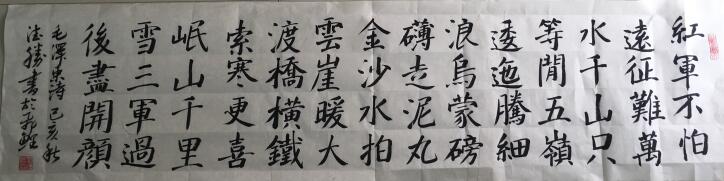 紅軍不怕
遠征難萬
水千山只
等閒五嶺
逶迤騰細
浪烏蒙磅
礴走泥丸
金沙水拍
雲崖暖大
渡橋橫鐵
索寒更喜
岷山千里
雪三軍過
後盡開顏
毛澤東詩己亥秋
勝書於